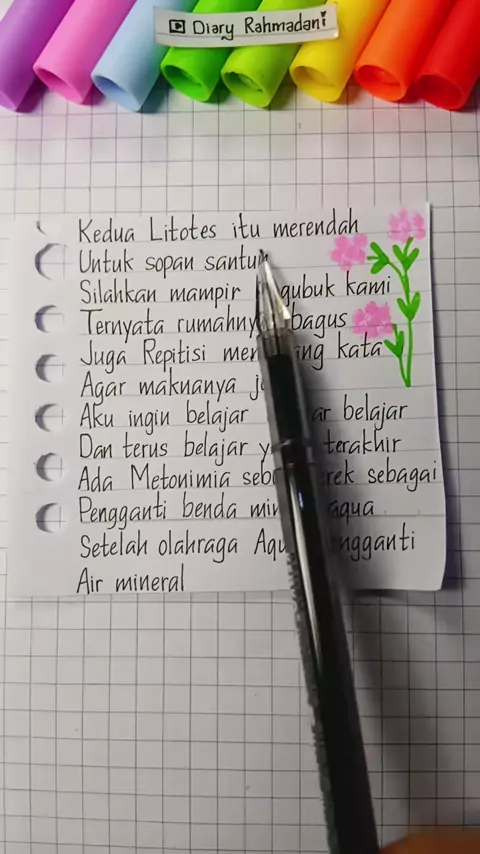 Diary Rahmadani
Kedua Litotes itu merendah
Untuk sopan santun
Silahkan mampir kami
Ternyata rumahnya bagus
Juga Repitisi kata
Agar maknanya
Aku ingin belajar belajar
Dan terus belajar terakhir
Ada Metonimia sebagai
Pengganti benda aqua
Setelah olahraga
Air mineral